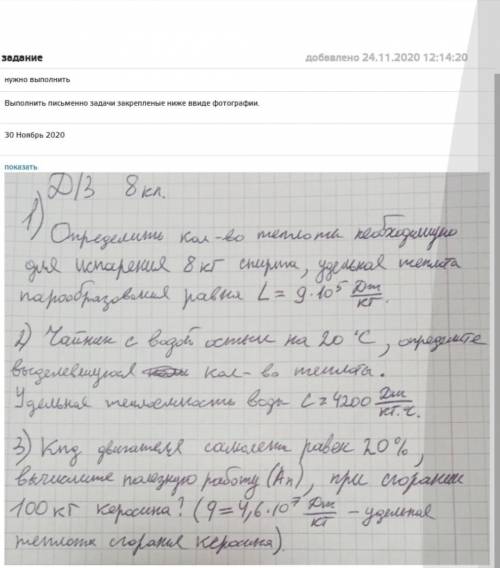 задание
добавлено 24.11.2020 12:14:20
нужно выполнить
Выполнить письменно задачи закрепленые ниже ввиде фотографии.
30 Ноябрь 2020
показать
Д/З 8 кл.
1)
Определить кол-во теплоты необходимую
для испарения 8 кг спирта, удельная теплота
парообразования равна L = 9·10⁵ Дж/кг.
2) Чайник с водой остыл на 20 °C, определите
выделевшуюся кол-во теплоты.
Удельная теплоемкость воды C = 4200 Дж/кг.°C.
3) Кпд двигателя самолета равен 20%,
вычислите полезную работу (Aп), при сгорании
100 кг керосина? (q = 4,6·10⁷ Дж/кг – удельная
теплота сгорания керосина).